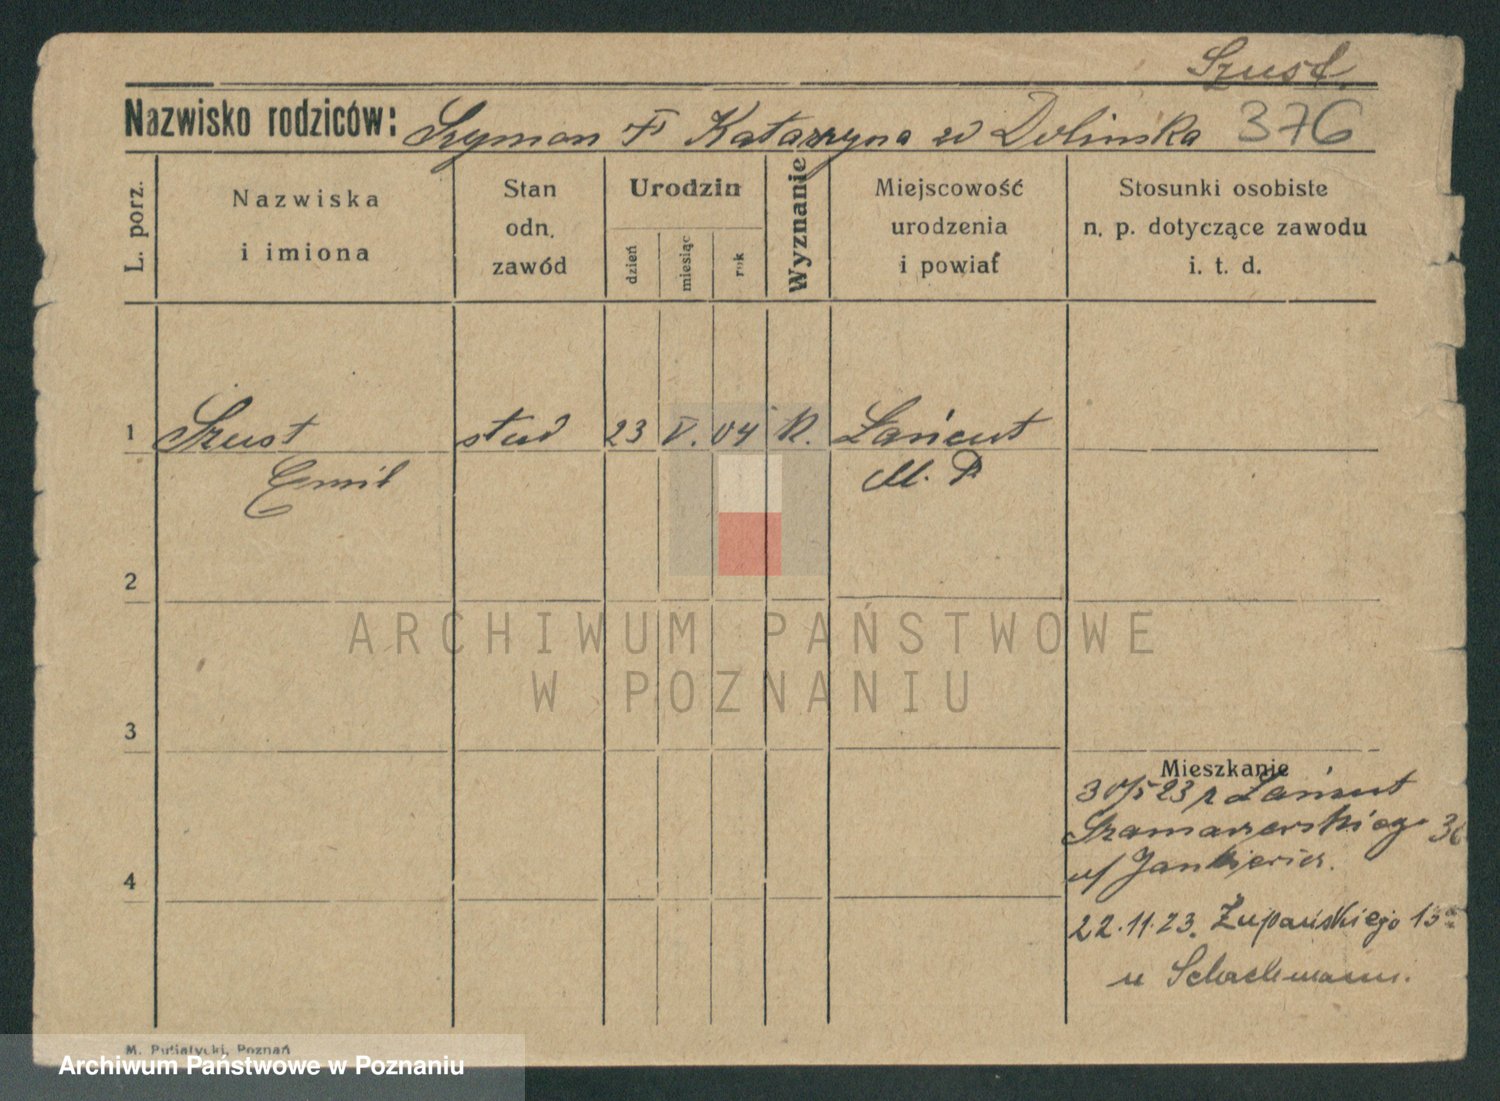 Szust.
Nazwisko rodziców: Szymon + Katarzyna zd Dolinska 376
L. porz.
Nazwiska
i imiona
Stan
odn.
zawód
Urodzin
dzień
miesiąc
rok
Wyznanie
Miejscowość
urodzenia
i powiat
Stosunki osobiste
n. p. dotyczące zawodu
i. t. d.
1 Szust stud 23 V. 04 R. Łańcut
Emil M. P
2
ARCHIWUM PAŃSTWOWE
W POZNANIU
3
Mieszkanie
23 z Łańcut
Szamarzerskiego 36
u/
4
22.11.23. Żupańskiego 13a
u Schachmann.
M. Pusiatycki, Poznań
Archiwum Państwowe w Poznaniu